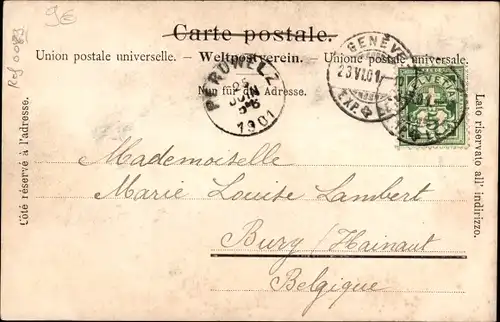 9€
Ref 0083
Carte postale.
Union postale universelle. – Weltpostverein. – Unione postale universale.
Nur für die Adresse.
Côté réservé à l'adresse.
Lato riservato all' indirizzo.
PÉRUWELZ
25
JUIN
1901
GENÈVE
23.VI.01
EXP.
Mademoiselle
Marie Louise Lambert
Bury / Hainaut
Belgique